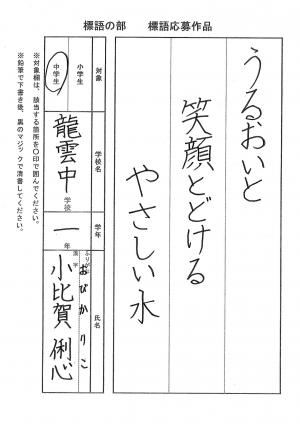 標語の部　標語応募作品
うるおいと
笑顔とどける
やさしい水
対象
小学生
中学生
学校名
龍雲中学校
学年
一年
氏名
ふりがな
おびか りこ
漢字
小比賀 俐心
※対象欄は、該当する箇所を〇印で囲んでください。
※鉛筆で下書き後、黒のマジックで清書してください。